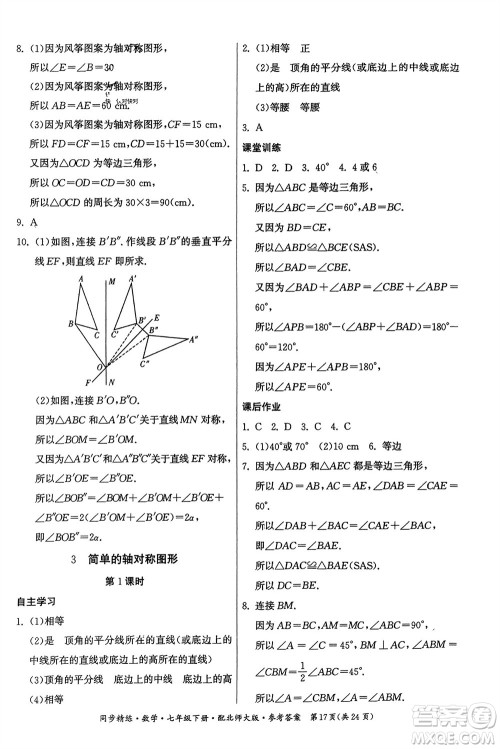 8. (1)因为风筝图案为轴对称图形,
所以∠E=∠B=30
(2)因为风筝图案为轴对称图形,
所以 AB=AE=60 cm.
(3)因为风筝图案为轴对称图形,CF=15 cm,
所以 DF=CF=15 cm,CD=15+15=30(cm).
又因为△OCD 为等边三角形,
所以△OCD 的周长为 30×3=90(cm).
9. A
10. (1)如图,连接 B′B″.作线段 B′B″的垂直平分
线EF,则直线 EF 即所求.
A M A′
B C C′ B′ E
B″ A″
O C″
F N
(2)如图,连接 B′O,B″O,BO.
因为△ABC 和△A′B′C′关于直线 MN 对称,
所以∠BOM=∠B′OM.
又因为△A′B′C′和△A″B″C″关于直线 EF 对称,
所以∠B′OE=∠B″OE.
所以∠BOB″=∠BOM+∠B′OM+∠B′OE+
∠B″OE=2(∠B′OM+∠B′OE)=2α.
即∠BOB″=2α.
3 简单的轴对称图形
第 1 课时
自主学习
1. (1)相等
(2)是 顶角的平分线所在的直线 底边上的
中线所在的直线 底边上的高所在的直线
(3)相等
2. (1)相等 正
(2)是 顶角的平分线(或底边上的中线或底边
上的高)所在的直线
(3)等腰 等腰
3. A
课堂训练
1. D 2. D 3. 40° 4. 4 或 6
5. 因为△ABC 是等边三角形,
所以∠ABC=∠C=60°,AB=BC.
又因为 BD=CE,
所以△BAD≌△CBE(SAS).
所以∠BAD=∠CBE.
又因为∠BAD+∠APB+∠ABP=180°,
所以∠APB=180°−(∠BAD+∠ABP)=180°−
(∠CBE+∠ABP)=180°−∠ABC=120°.
又因为∠APE+∠APB=180°,
所以∠APE=60°.
课后作业
1. C 2. D 3. C 4. C
5. (1)40°或 70° (2)10 cm 6. 等边
7. 因为△ABD 和△AEC 都是等边三角形,
所以 AD=AB,AC=AE,
∠DAB=∠CAE=60°.
所以∠DAB+∠BAC=∠CAE+∠BAC,
即∠DAC=∠BAE.
所以△DAC≌△BAE(SAS).
所以 BE=DC.
8. 连接 BM.
因为 AB=BC,AM=MC,
所以∠A=∠C=45°,∠ABM=∠CBM=
同步精练·数学·七年级下册·配北师大版·参考答案 第17页(共24页)